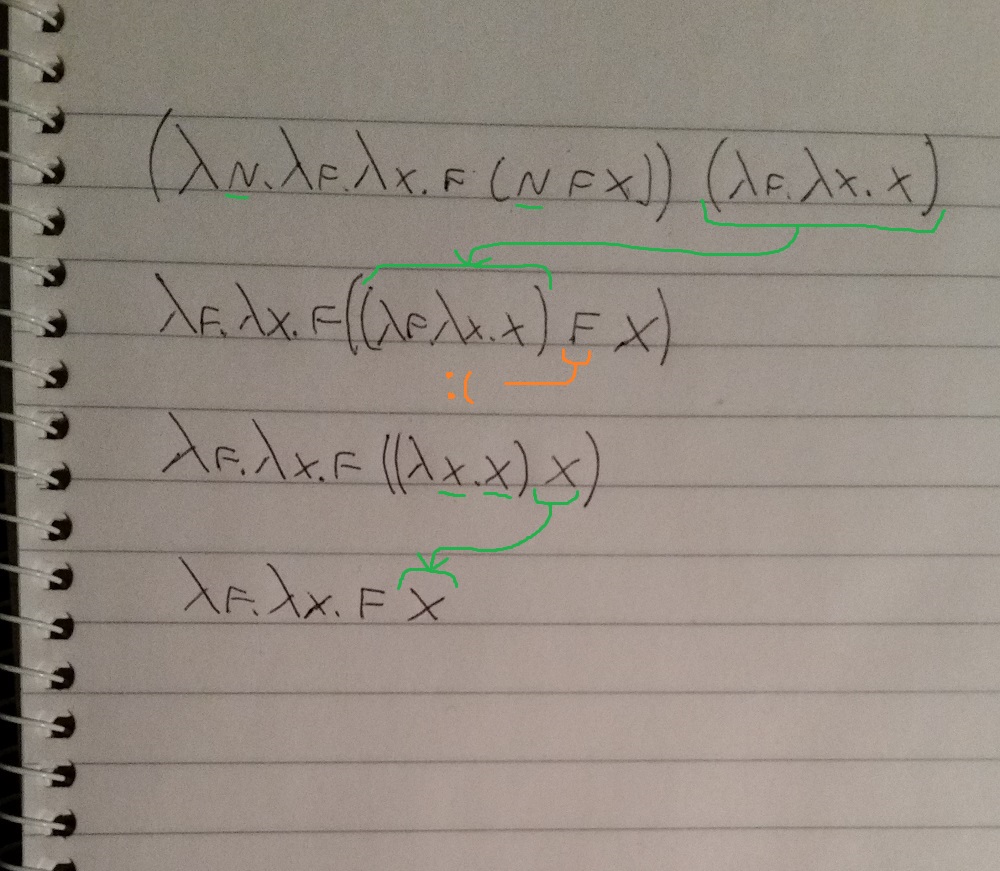 (λN.λF.λX.F (N F X)) (λF.λX.X)
λF.λX.F((λF.λX.X) F X)
:(
λF.λX.F ((λX.X) X)
λF.λX.F X